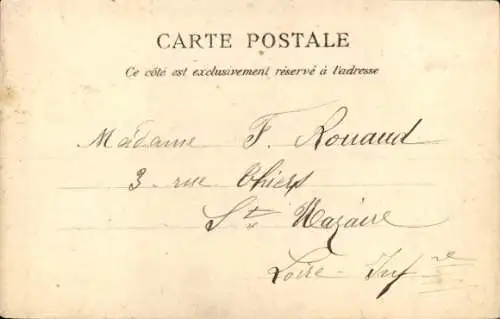 CARTE POSTALE
Ce côté est exclusivement réservé à l'adresse
Madame F. Rouaud
3 rue Thiers
St Nazaire
Loire-Infre